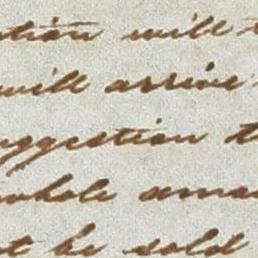 ation will
will arrive
uggestion t
whole amou
t be sold